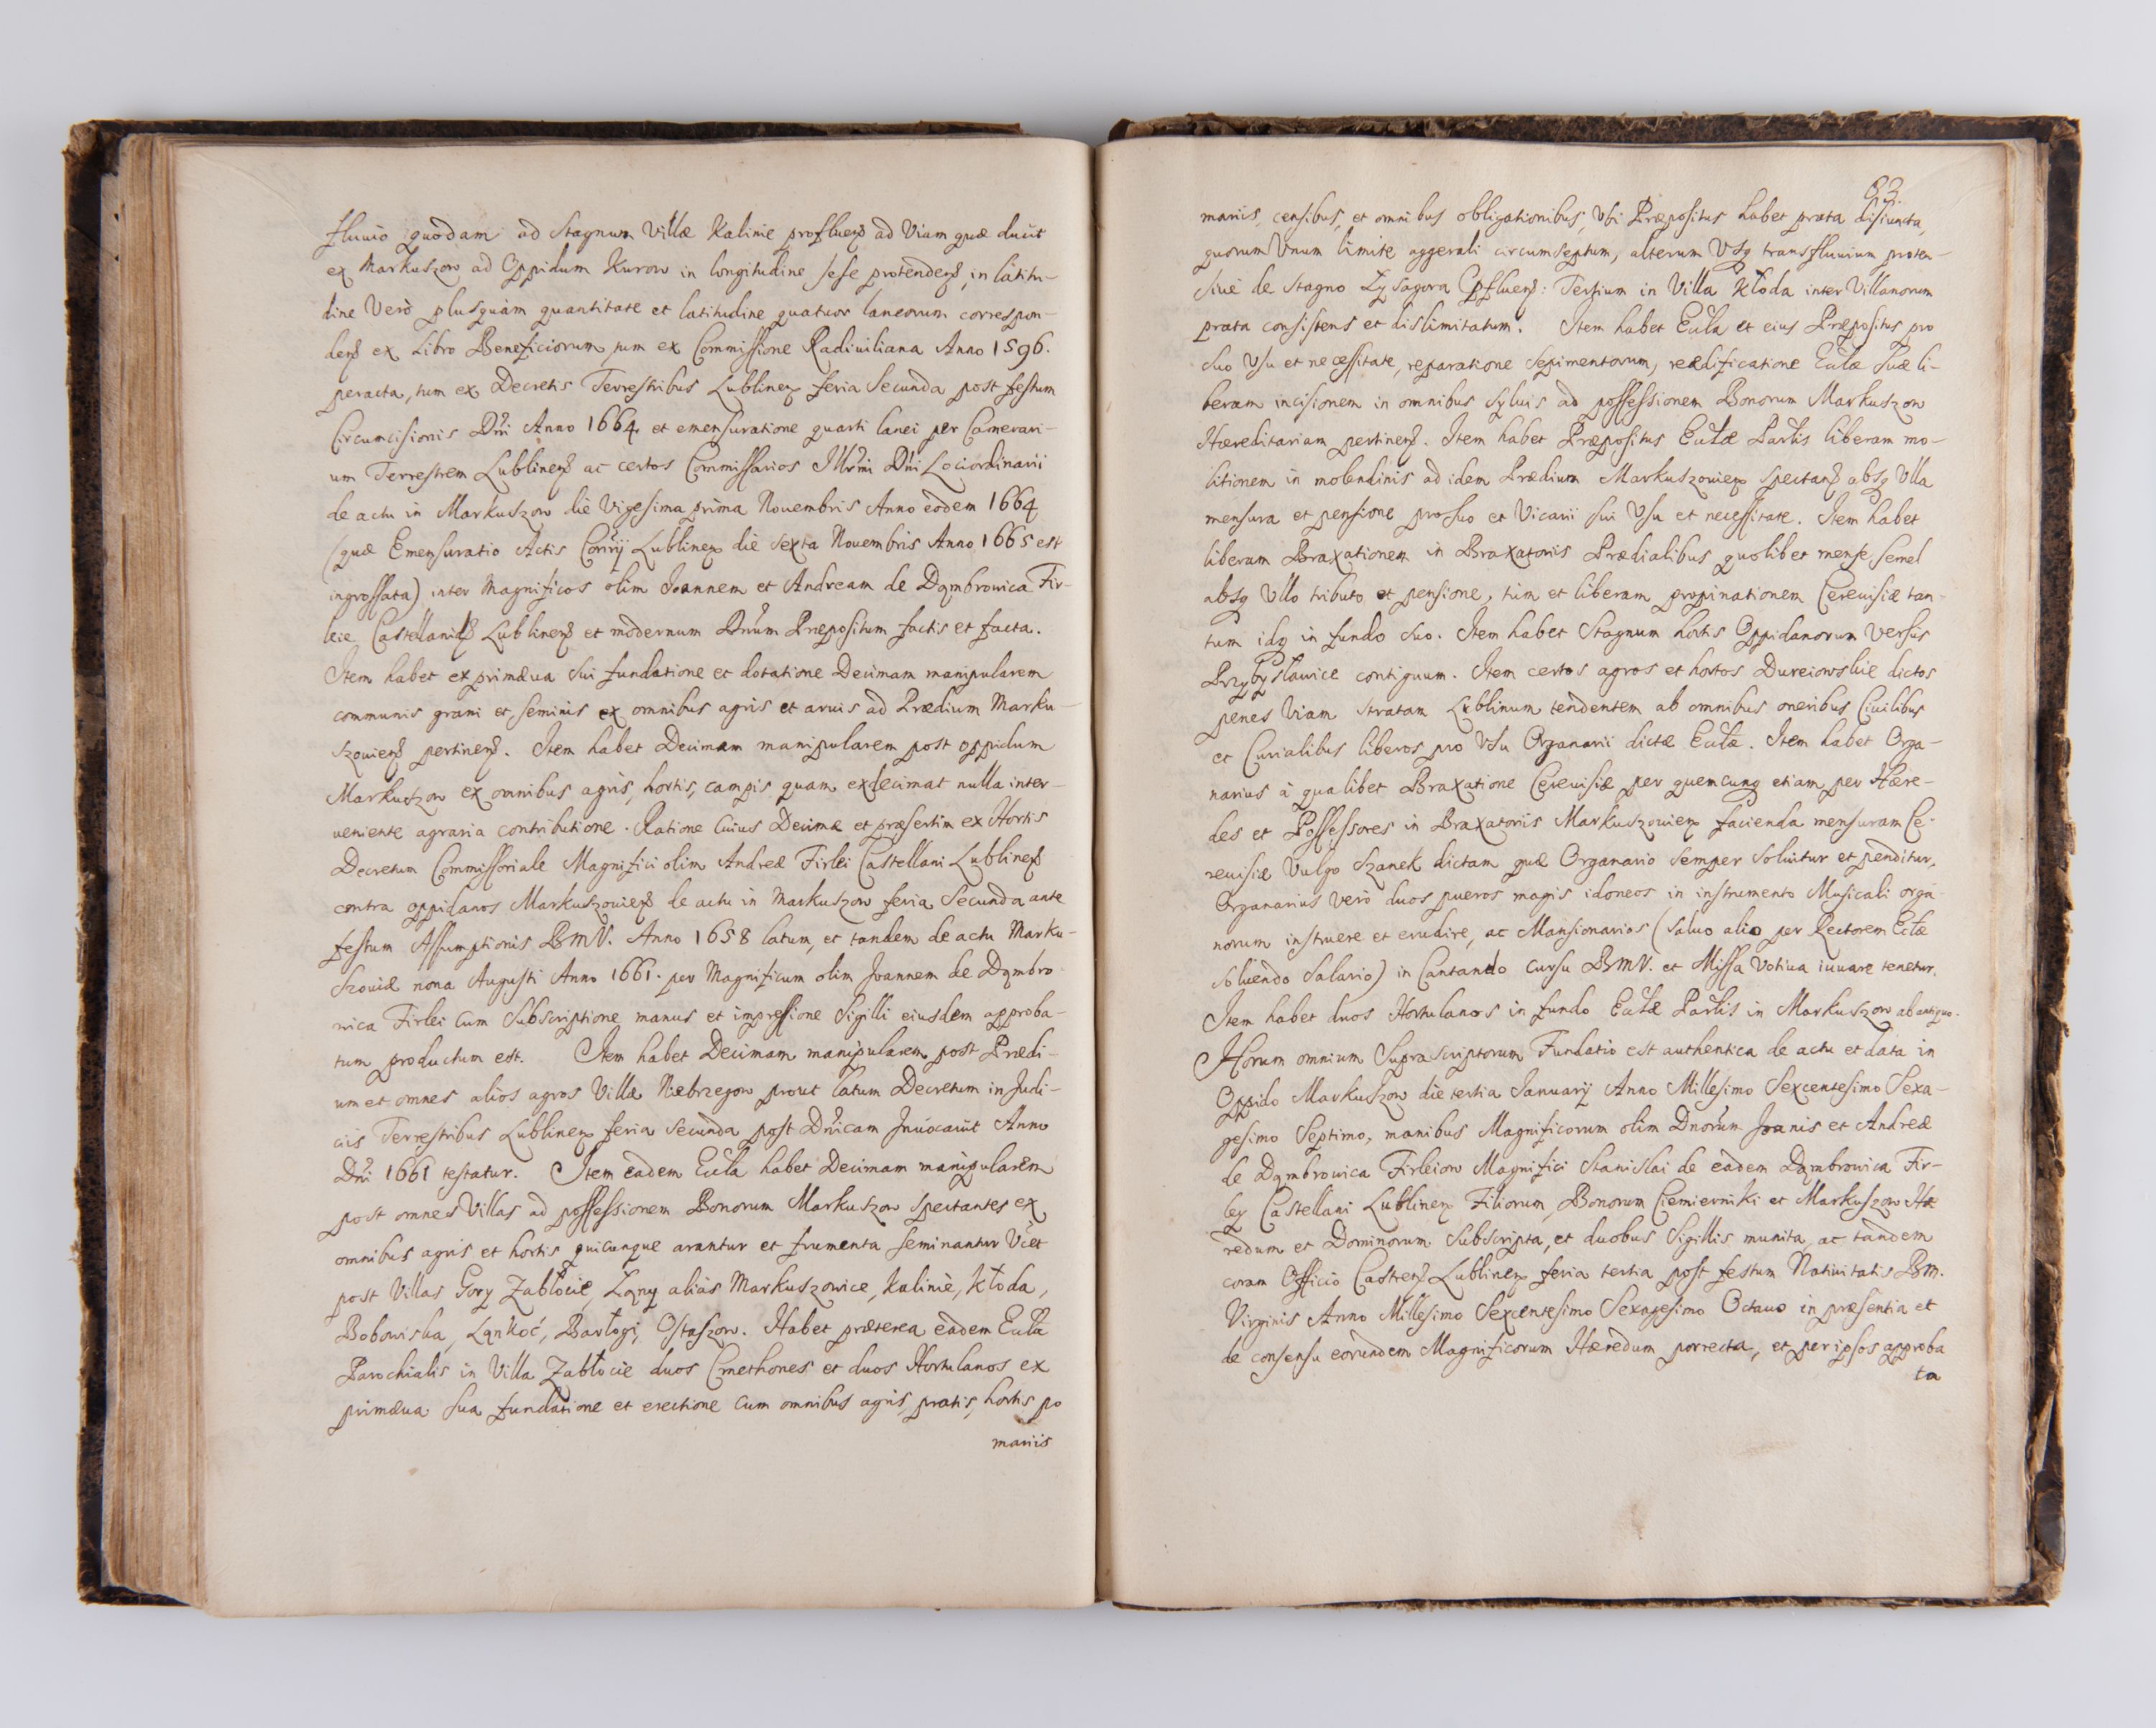 fluuio quodam ad Stagnum Villæ Kalinie profluenſ ad Viam quæ ducit
ex Markuszow ad Oppidum Kurow in longitudine sese protendenſ, in latitu-
dine Verò plusquàm quantitate et latitudine quatuor laneorum correspon-
denſ ex Libro Beneficiorum, tum ex Commissione Radiuiliana Anno 1596.
peracta, tum ex Decretis Terrestribus Lublinenſ feria Secunda post festum
Circumcisionis Dñi Anno 1664 et emensuratione quarti lanei per Camerari-
um Terrestrem Lublinenſ ac certos Commissarios Illr̃mi Dñi Lociordinarii
de actu in Markuszow die Vigesima prima Nouembris Anno eodem 1664
(quæ Emensuratio Actis Lublinenſ die Sexta Nouembris Anno 1665 est
ingrossata) inter Magnificos olim Joannem et Andream de Dąmbrowica Fir-
leie Lublinenſ et modernum Dñum Præpositum factis et facta.
Item habet ex primæua sui fundatione et dotatione Decimam manipularem
communis grani et seminis ex omnibus agris et aruis ad Prædium Marku-
szouienſ pertinenſ. Item habet Decimam manipularem post oppidum
Markuszow ex omnibus agris, hortis, campis quam exdecimat nulla inter-
ueniente agraria contributione. Ratione Cuius Decimæ et præsertim ex Hortis
Decretum Commissoriale Magnifici olim Andreæ Firlei Castellani Lublinenſ
contra oppidanos Markuszouienſ de actu in Markuszow feria Secunda ante
festum Assumptionis BMV. Anno 1658 latum, et tandem de actu Marku-
szouiæ nona Augusti Anno 1661. per Magnificum olim Joannem de Dąmbro
wica Firlei cum Subscriptione manus et impressione Sigilli eiusdem approba-
tum productum est. Item habet Decimam manipularem post Prædi-
um et omnes alios agros Villæ Niebrzegow prout latum Decretum in Judi-
ciis Terrestribus Lublinenſ feria Secunda post Dñicam Inuocauit Anno
Dñi 1661 testatur. Item eadem Eccl̃a habet Decimam manipularem
post omnes Villas ad possessionem Bonorum Markuszow Spectantes ex
omnibus agris et hortis quicunque arantur et frumenta seminantur Vi͠et
post Villas Gory Zabłocie, Łąny alias Markuszowice, Kalinie, Kłoda,
Bobowiska, Łąnkoć, Barłogi, Ostaszow. Habet præterea eadem Eccl̃a
Parochialis in Villa Zabłocie duos Cmethones et duos Hortulanos ex
primæua sua fundatione et erectione Cum omnibus agris, pratis, hortis po
mariis
83.
mariis, censibus, et omnibus obligationibus, Vbi Præpositus habet prata disiuncta,
quorum Vnum limite aggerali circumseptum, alterum Vsq transfluuium proten-
siue de Stagno Łysagora: Tertium in Villa Kłoda inter Villanorum
prata consistens et dislimitatum. Item habet Eccl̃a et eius Præpositus pro
suo Vsu et necessitate, reparatione Sepimentorum, reædificatione Eccl̃æ suæ li-
beram incisionem in omnibus Syluis ad possessionem Bonorum Markuszow
Hæreditariam pertinenſ. Item habet Præpositus Eccl̃æ Parlis liberam mo-
litionem in molendinis ad idem Prædium Markuszouienſ Spectanſ absq Vlla
mensura et pensione pro suo et Vicarii sui Vsu et necessitate. Item habet
liberam Braxationem in Braxatoriis Prædialibus quolibet mense semel
absq Vllo tributo et pensione, tùm et liberam propinationem Cereuisiæ tan-
tum idq in fundo suo. Item habet Stagnum hortis Oppidanorum Versus
Przybysławice contiguum. Item certos agros et hortos Dureiowskie dictos
penes Viam Stratam Lublinum tendentem ab omnibus oneribus Ciuilibus
et Curialibus liberos pro Vsu Organarii dictæ Eccl̃æ. Item habet Orga-
narius à qualibet Braxatione Cereuisiæ per quemcunq etiam per Hære-
des et Possessores in Braxatoriis Markuszouienſ facienda mensuram Ce-
reuisiæ Vulgo Szanek dictam quæ Organario semper soluitur et penditur.
Organarius verò duos pueros magis idoneos in instrumento Musicali orga
norum instruere et erudire, ac Mansionarios (saluo alio per Rectorem Eccl̃æ
soluendo Salario) in Cantando cursu BMV. et Missa Votiua iuuare tenetur.
Item habet duos Hortulanos in fundo Eccl̃æ Parlis in Markuszow ab antiquo.
Horum omnium Suprascriptorum Fundatio est authentica de actu et data in
Oppido Markuszow die tertia Januarÿ Anno Millesimo Sexcentesimo Sexa-
gesimo Septimo, manibus Magnificorum olim Dnorum Joanis et Andreæ
de Dąmbrowica Firleiow Magnifici Stanislai de eadem Dąmbrowica Fir-
ley Castellani Lublinenſ Filiorum, Bonorum Ciemierniki et Markuszow Hæ
redum et Dominorum Subscripta, et duobus Sigillis munita, ac tandem
coram Officio Castrenſ Lublinenſ feria tertia post festum Natiuitatis BM.
Virginis Anno Millesimo Sexcentesimo Sexagesimo Octauo in præsentia et
de consensu eorundem Magnificorum Hæredum porrecta, et per ipsos approba
ta